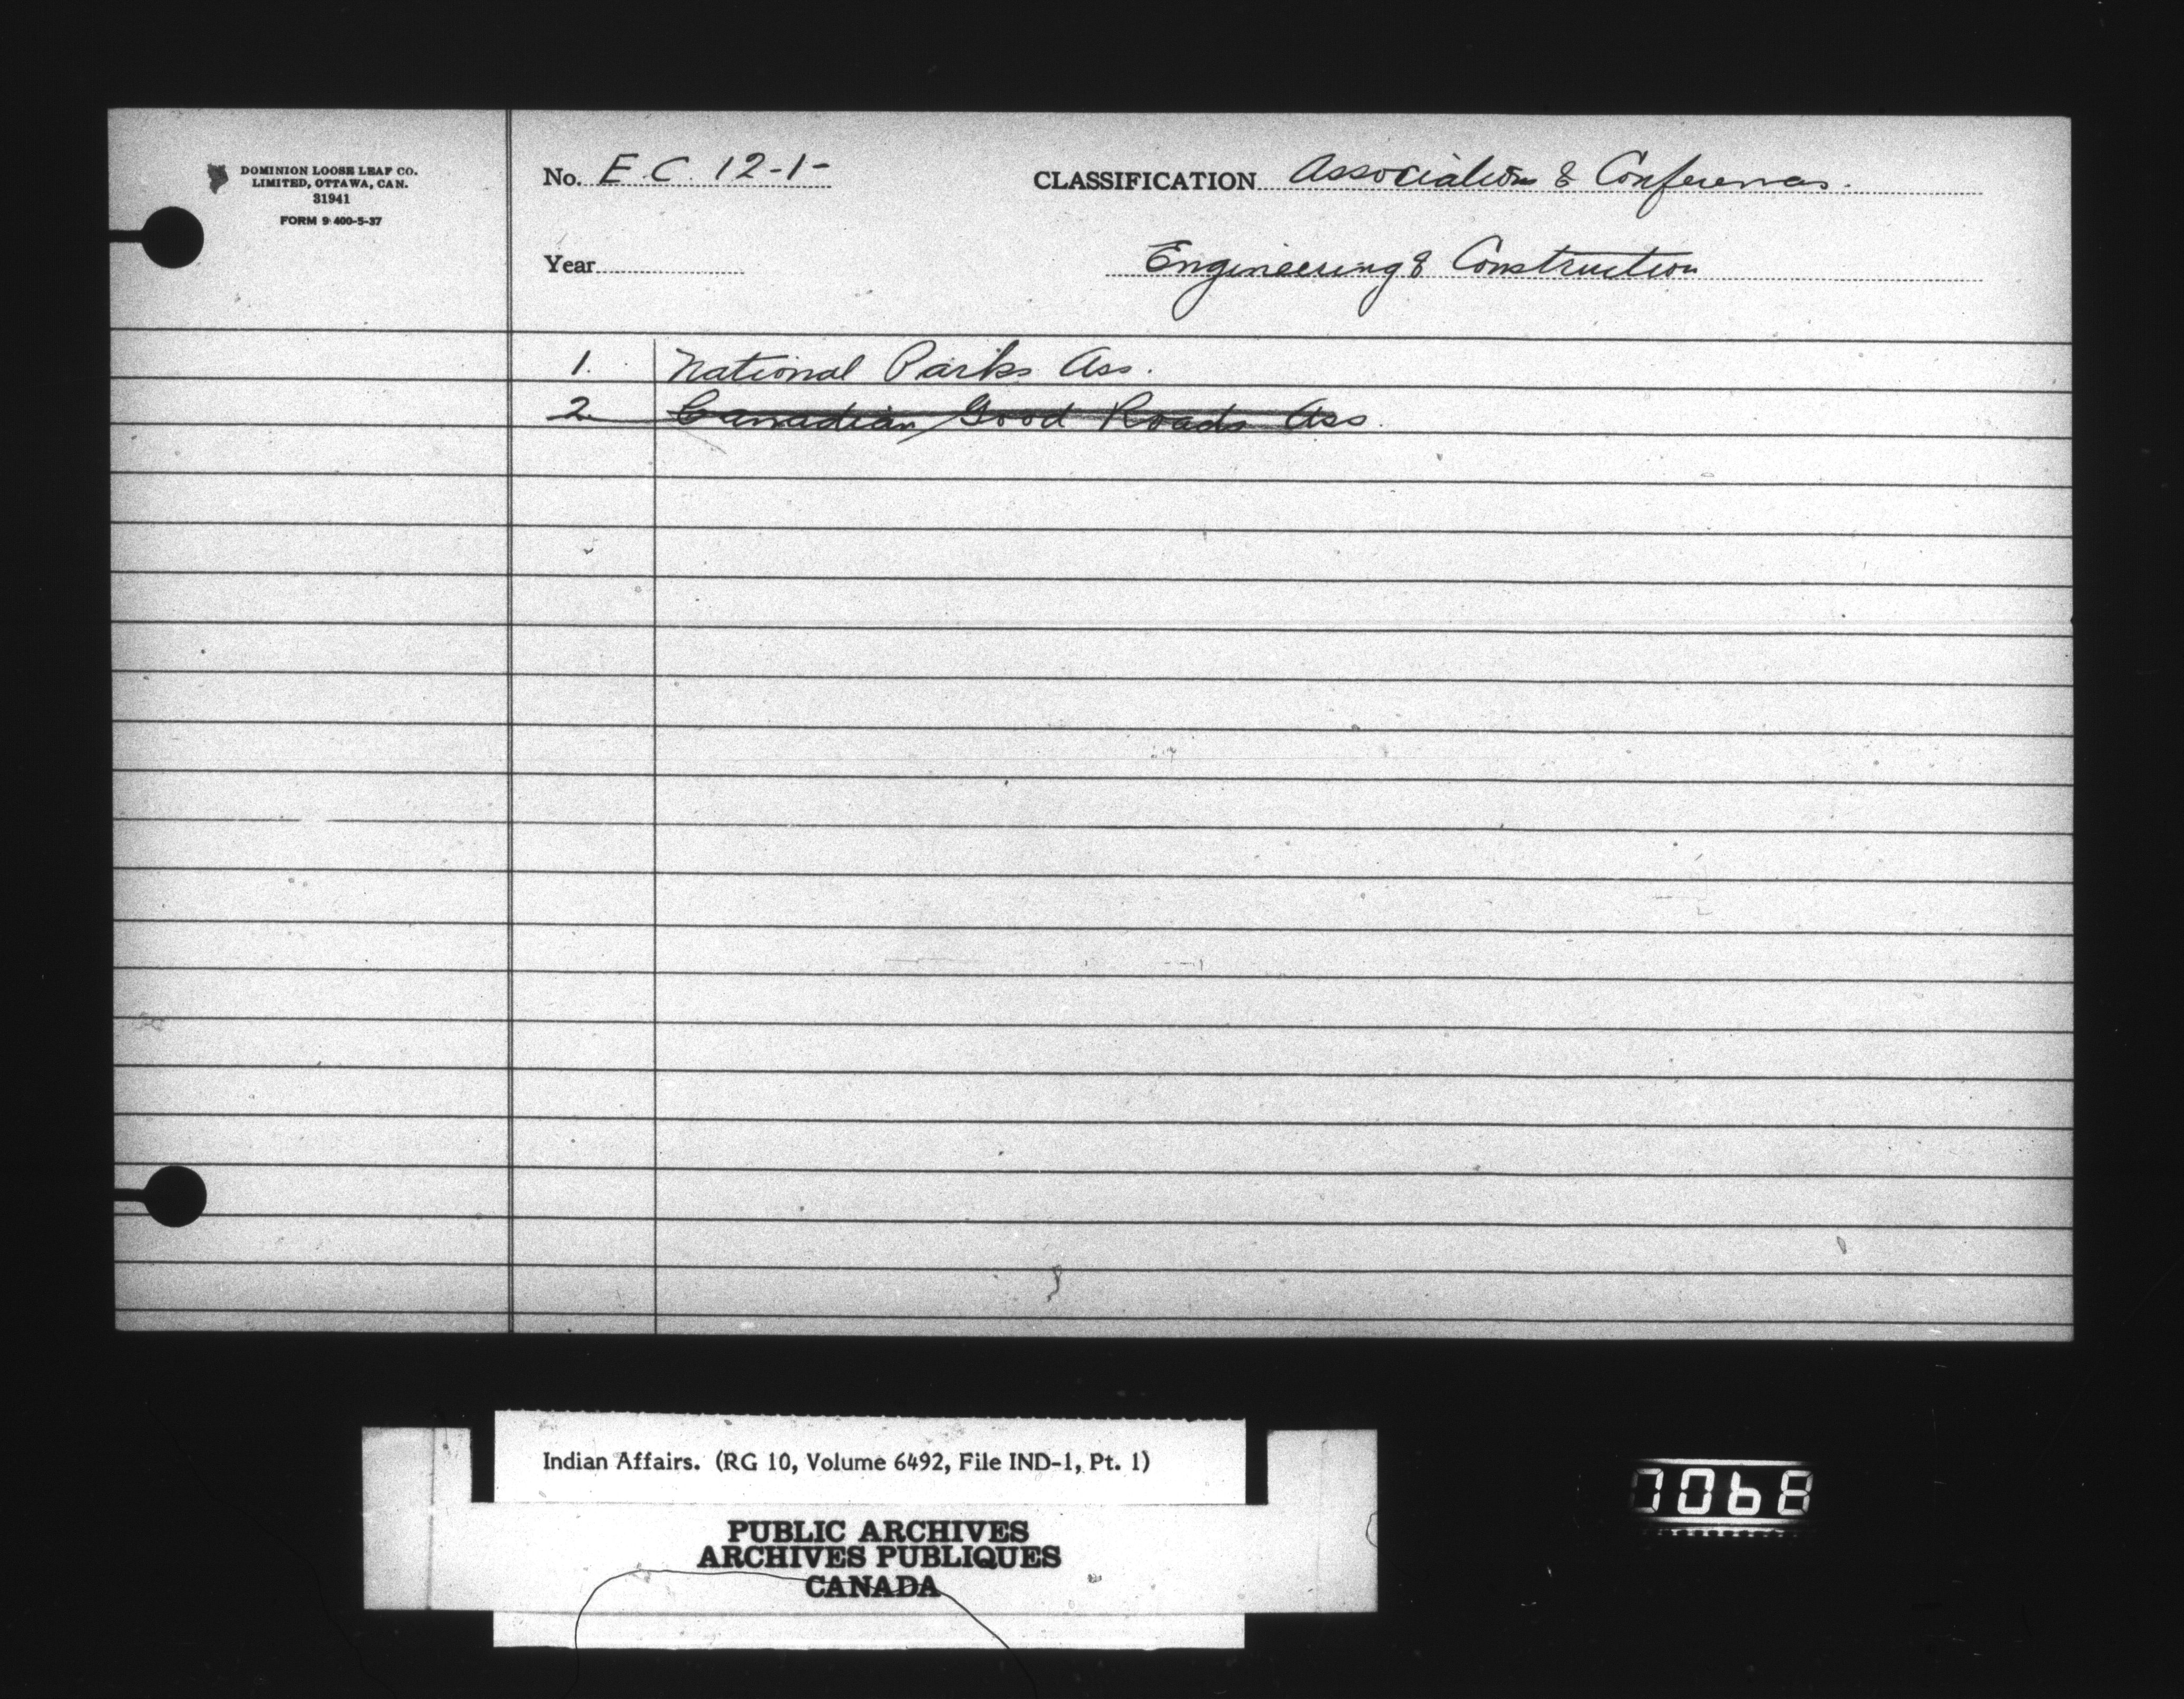 DOMINION LOOSE LEAF CO.
LIMITED, OTTAWA, CAN.
31941
FORM 9 400-5-37
No. E.C. 12-1-
CLASSIFICATION Associations & Conferences.
Year
Engineering & Construction
1. National Parks Ass.
2. Canadian Good Roads Ass.
Indian Affairs. (RG 10, Volume 6492, File IND-1, Pt. 1)
PUBLIC ARCHIVES
ARCHIVES PUBLIQUES
CANADA